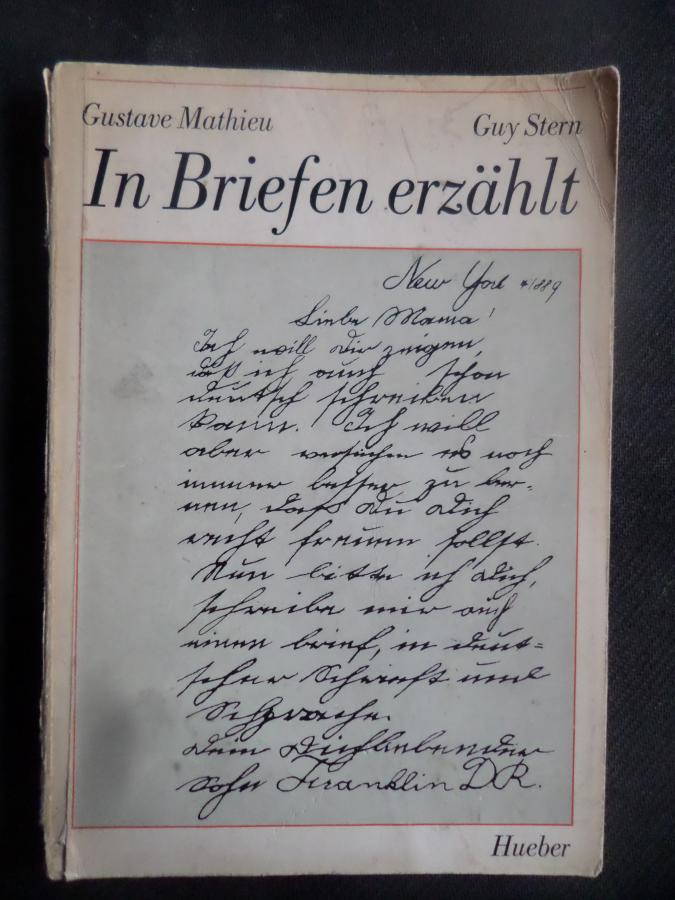 Gustave Mathieu
Guy Stern
In Briefen erzählt
New York 1889
Liebe Mama!
Ich will Dir zeigen,
daß ich auch schon
deutsch schreiben
kann. Ich will
aber versuchen es noch
immer besser zu ler-
nen, daß Du Dich
recht freuen sollst.
Nun bitte ich Dich,
schreibe mir auch
einen brief, in deut-
scher Schrift und
Schprache.
Dein Dichliebender
Sohn Franklin D.R.
Hueber